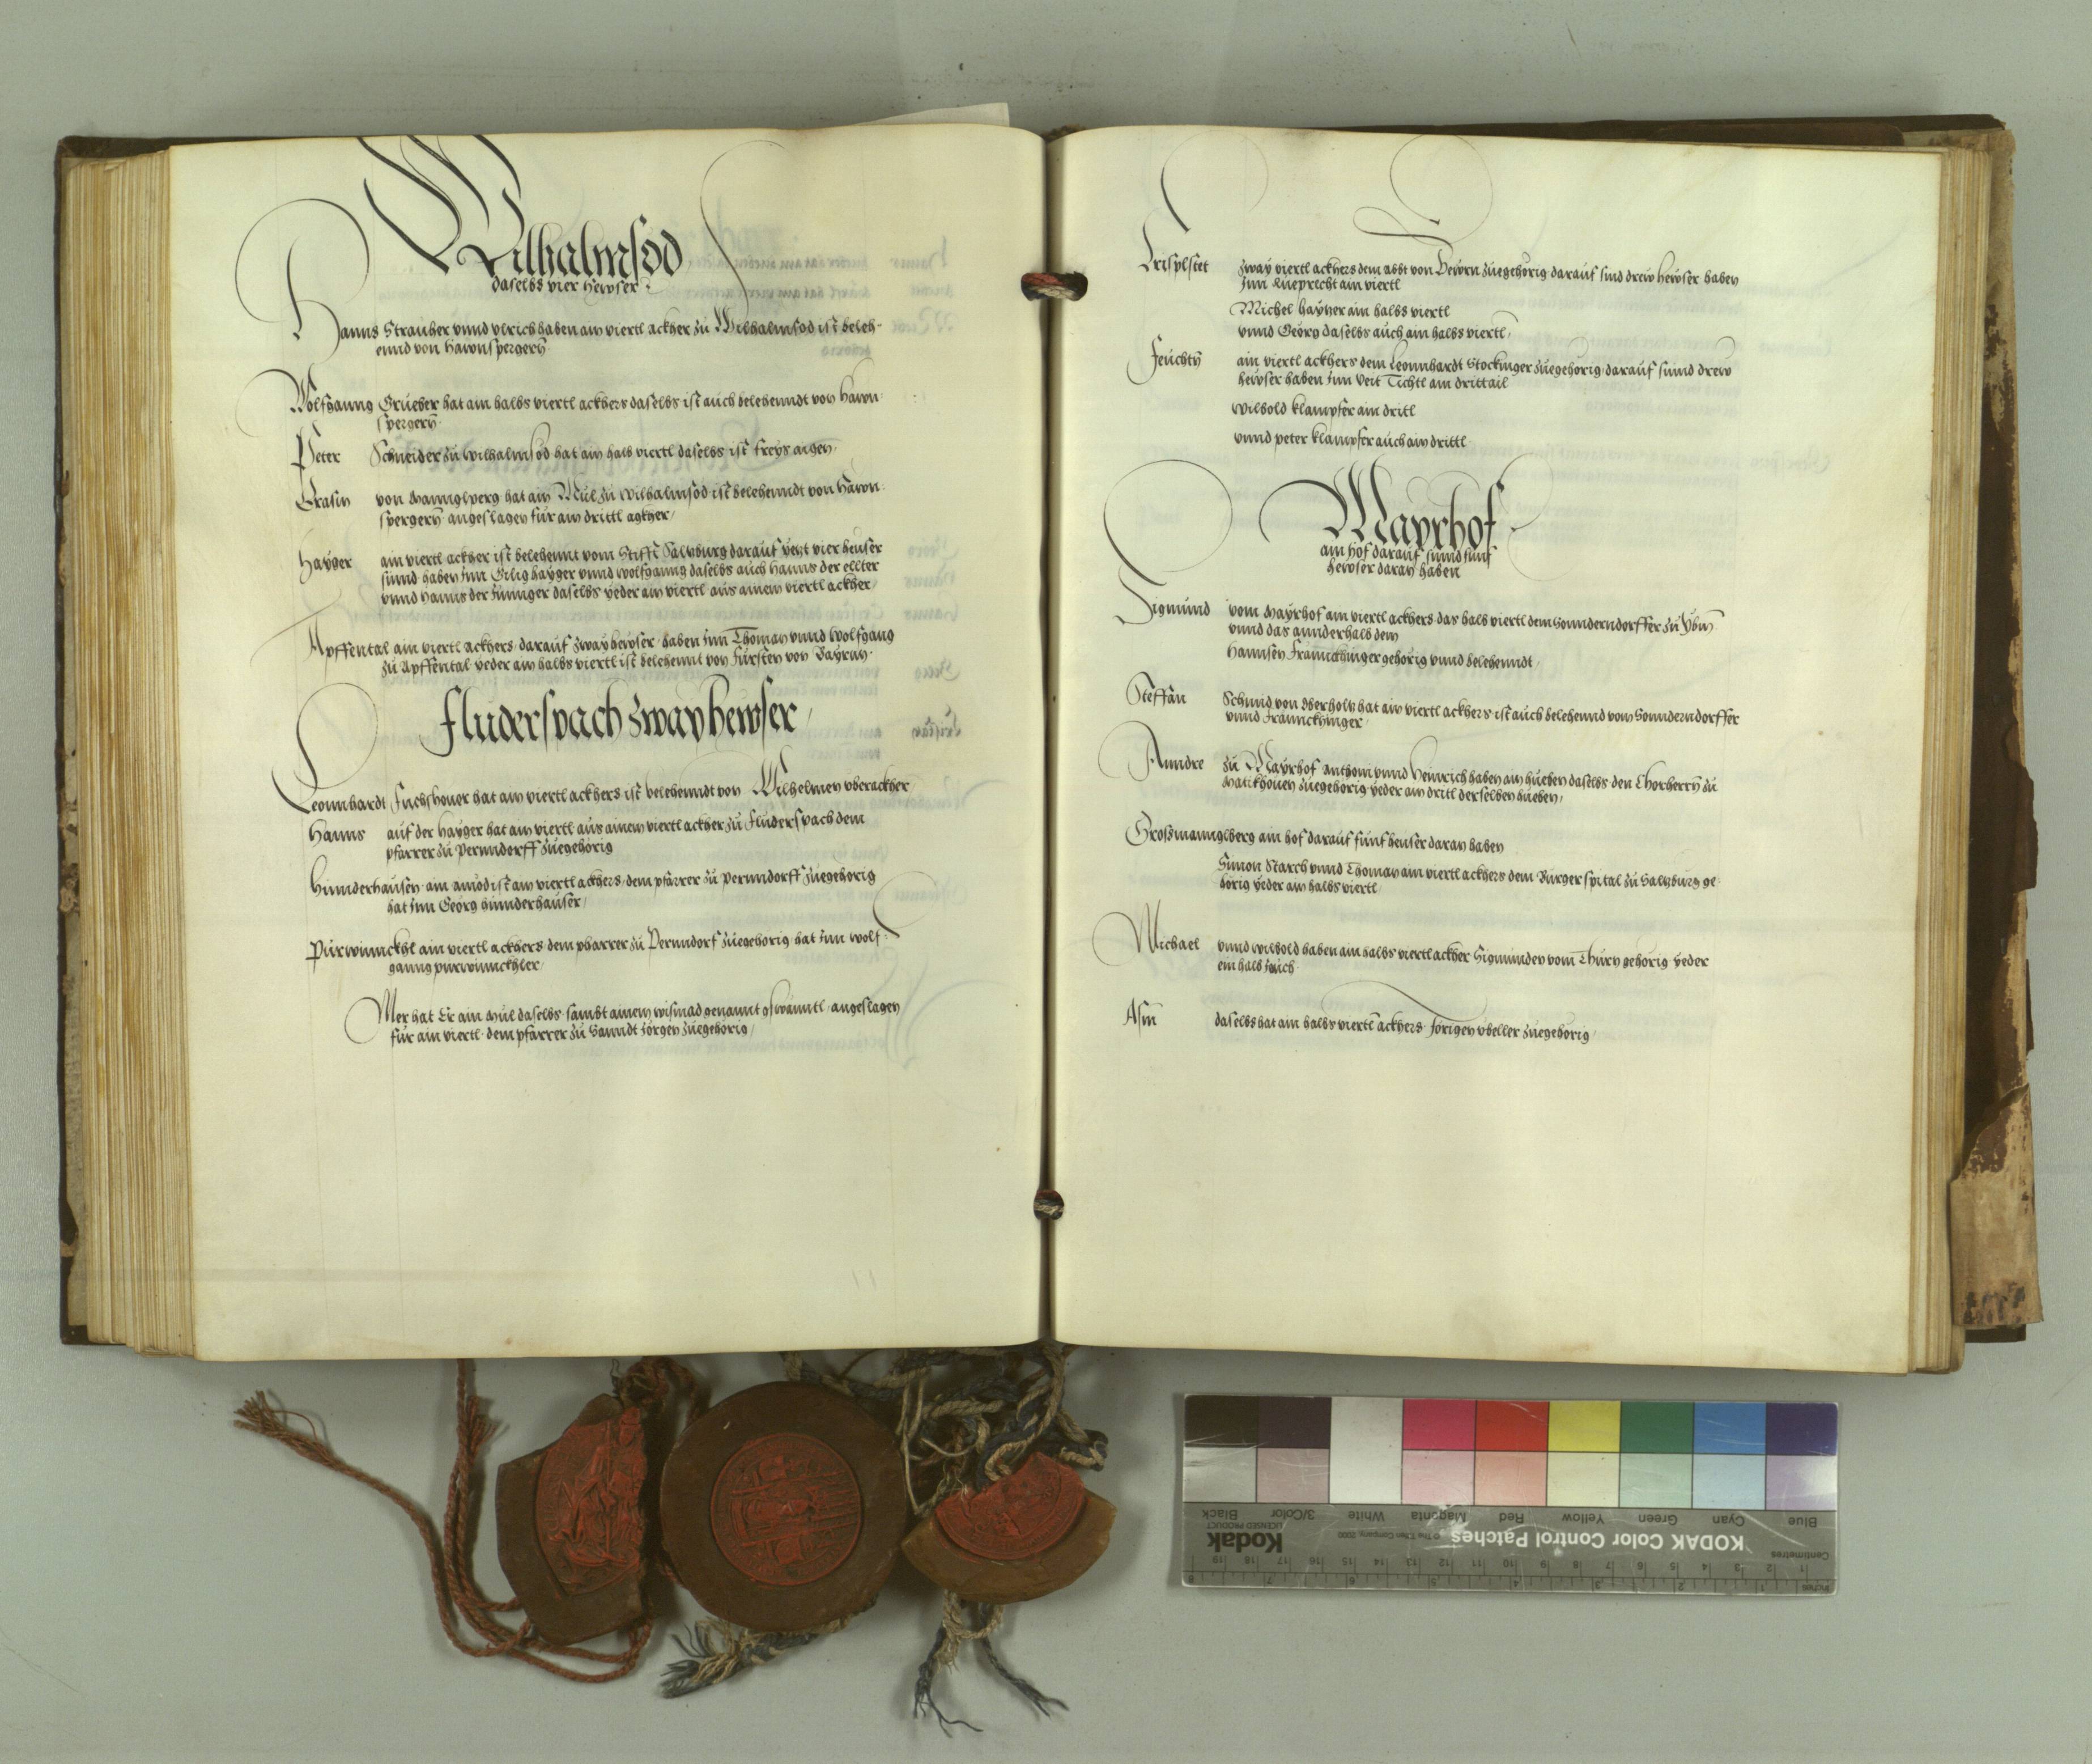 Wilhalmsöd
daselbs vier hewser
Hanns Strauber vnnd vlrich haben ain viertl ackher zu Wilhalmsöd ist beleh-
ennd von Hawnspergern
Wolfganng Grueber hat ain halbs viertl ackhers daselbs ist auch belehenndt von Hawn-
spergern
Peter Schneider zu wilhalmsöd hat ain halb viertl daselbs ist freys aigen
Erasm von Mannglperg hat ain Mül zu wilhalmsöd ist belehenndt von Hawn-
spergern angeslagen für ain drittl agkher
Hayger ain viertl ackher ist belehennt vom Stifft Saltzburg darauf yetzt vier heuser
sinnd haben Inn Gilig hayger vnnd wolfganng daselbs auch Hanns der ellter
vnnd Hanns der Junnger daselbs yeder ain viertl aus ainem viertl ackher
Apffental ain viertl ackhers darauf zway hewser haben Inn Thoman vnnd Wolfgang
zu Apffental yeder ain halbs viertl ist belehennt von Fürsten von Bayrn
Fluderspach zway hewser
Leonnhardt Fuchshouer hat ain viertl ackhers ist belehenndt von Wilhelmen vberackher
Hanns auf der Hayger hat ain viertl aus ainem viertl ackher zu Fluderspach dem
pfarrer zu Pernndorff zuegehörig
Hinnderhausen ain ainöd ist ain viertl ackhers dem pfarrer zu pernndorff zuegehörig
hat Inn Georg hinnderhauser
Purwinnckhl ain viertl ackhers dem pharrer zu Pernndorf zuegehörig hat Inn wolf-
ganng purwinnckhler
Mer hat Er ain Mül daselbs sambt ainem wismad genannt angeslagen
für ain viertl dem pfarrer zu Sanndt Jörgen zuegehörig
zway viertl ackhers dem abbt von Bewrn zuegehörig darauf sind drew hewser haben
Inn Rueprecht ain viertl
Michel hayner ain halbs viertl
vnnd Georg daselbs auch ain halbs viertl
Feuchtn ain viertl ackhers dem Leonnhardt Stockinger zuegehörig darauf sinnd drew
hewser haben Inn Veit Tichtl ain drittail
Wilbold klampfer ain dritl
vnnd peter klampfer auch ain drittl
Mayrhof
ain hof darauf sinnd fünf
hewser daran haben
Sigmund vom Mayrhof ain viertl ackhers das halb viertl dem Sonnderndorffer zu
vnnd das annder halb dem
Hannsen Frannckhinger gehörig vnnd belehenndt
Steffan Schmid von Oberholtz hat ain viertl ackhers ist auch belehennd vom Sonnderndorffer
vnnd Frannckhinger
Anndre zu Mayrhof Anthoni vnnd Heinrich haben ain hueben daselbs den Chorherrn zu
Matikhouen zuegehörig yeder ain dritl derselben hueben
Großmannglberg ain hof darauf fünf heuser daran haben
Simon Starch vnnd Thoman ain viertl ackhers dem Burger spital zu Saltzburg ge-
hörig yeder ain halbs viertl
Michael vnnd wilbold haben ain halbs viertl ackher Sigmunden vom Thurn gehörig yeder
ein halb
Asm daselbs hat ain halbs viertl ackhers Jörigen vbeller zuegehörig
KODAK Color Control Patches
Kodak
LICENSED PRODUCT
Blue Cyan Green Yellow Red Magenta White 3/Color Black
Centimetres
Inches